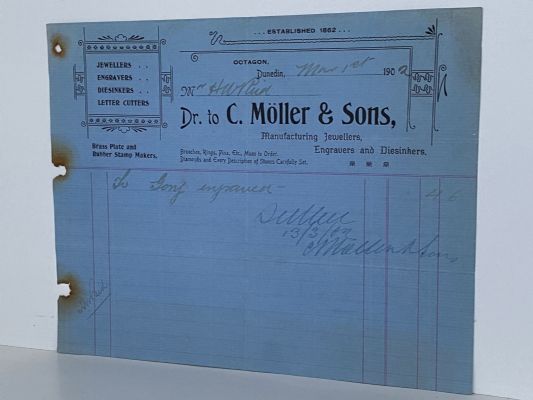 ... ESTABLISHED 1862 ...
JEWELLERS . .
ENGRAVERS . .
DIESINKERS . .
LETTER CUTTERS
Brass Plate and
Rubber Stamp Makers.
OCTAGON,
Dunedin, Mar 1st 1902
Mr H W Reid
Dr. to C. Möller & Sons,
Manufacturing Jewellers,
Engravers and Diesinkers.
Brooches, Rings, Pins, Etc., Made to Order.
Diamonds and Every Description of Stones Carefully Set.
To Gong engraved - 4 6
13/3/02
C Möller & Sons